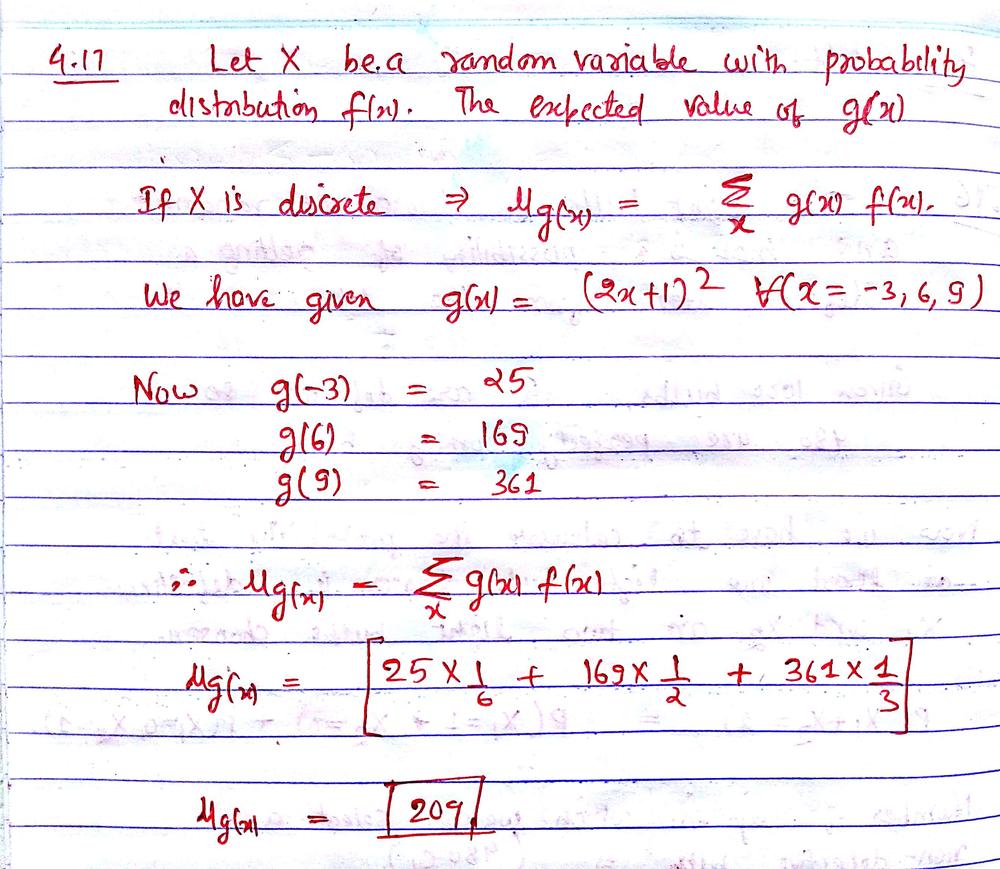 4.17 Let X be.a random variable with probability
distribution f(x). The expected value of g(x)
If X is discrete ⇒ μg(x) = Σx g(x) f(x).
We have given g(x) = (2x+1)² ∀(x = -3, 6, 9)
Now g(-3) = 25
g(6) = 169
g(9) = 361
∴ μg(x) = Σx g(x) f(x)
μg(x) = [25 × 1/6 + 169 × 1/2 + 361 × 1/3]
μg(x) = 209